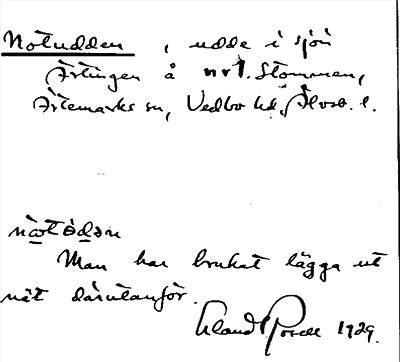 Notudden, udde i sjön
Ärtingen å nrl. Stommen,
Ärtemarks sn, Vedbo hd, Älvsb. l.
nòtòdən
Man har brukat lägga ut
nät därutanför.
Rosell 1929.